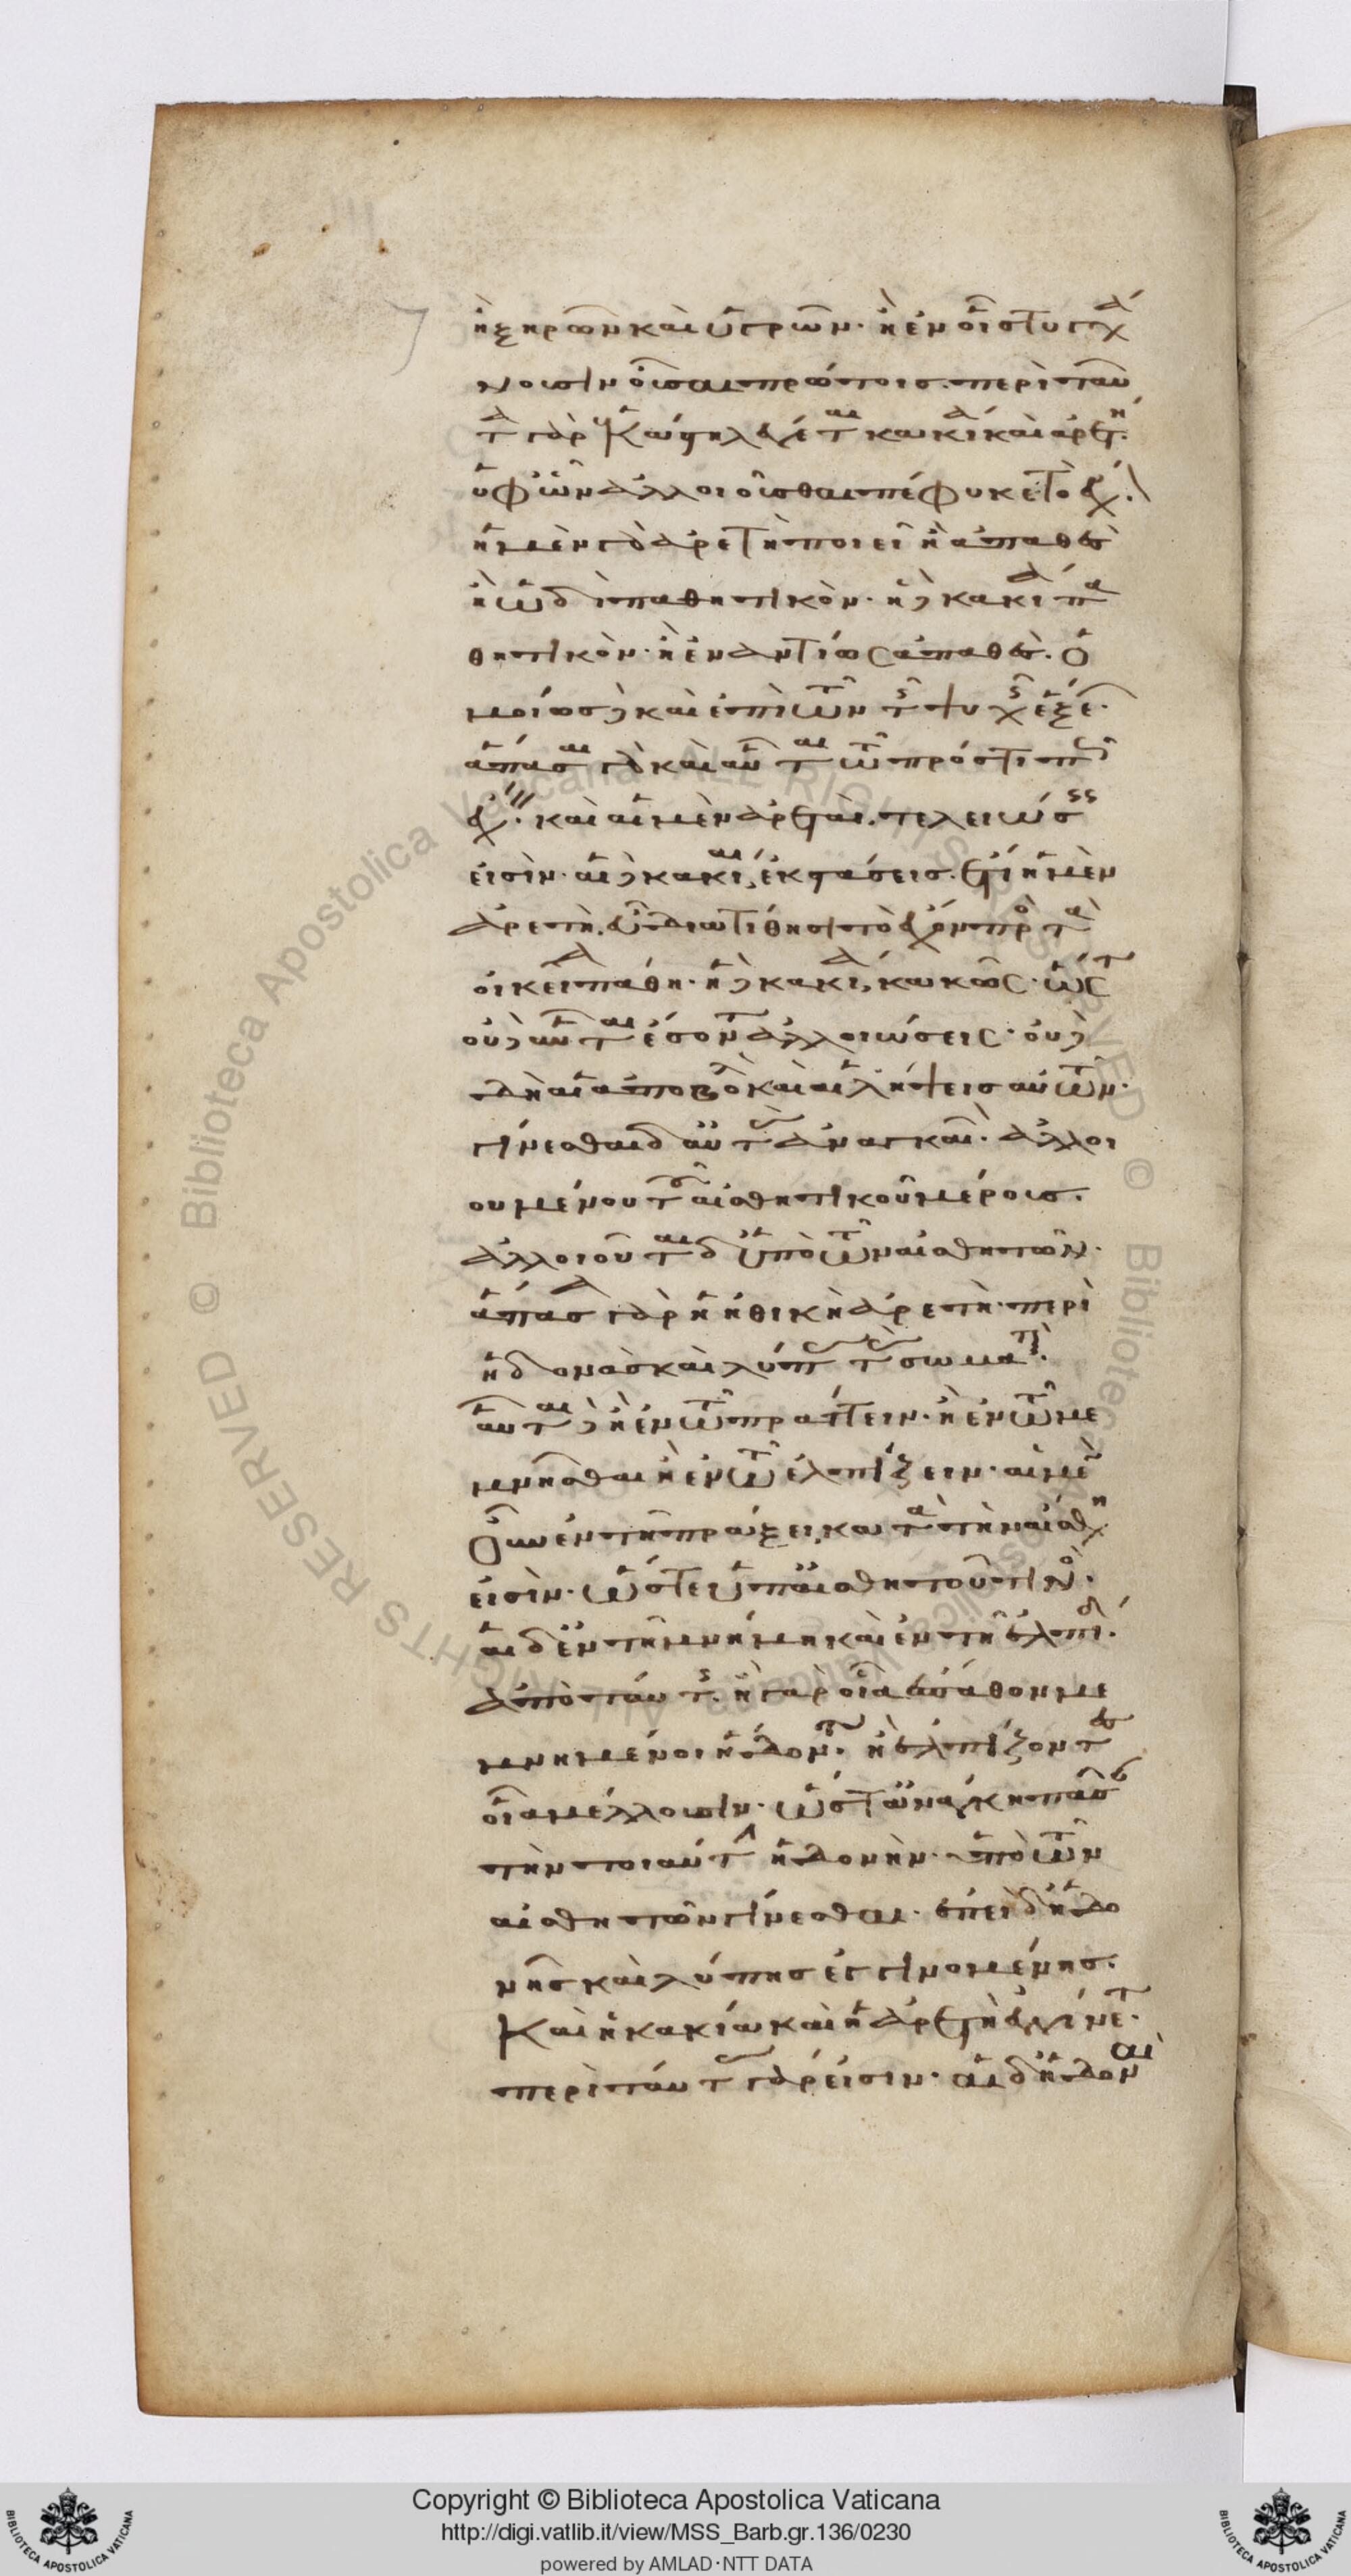 ἢ ξηρῶν καὶ ὑγρῶν· ἢ ἐν οἷς τυγχά
νουσιν οὖσαι πρώτοις. περὶ ταῦ
τα γὰρ ἑκάστη λέγεται κακία καὶ ἀρετή·
ὑφ' ὧν ἀλλοιοῦσθαι πέφυκε τὸ ἔχον·
ἡ μὲν γὰρ ἀρετὴ ποιεῖ ἢ ἀπαθὲς
ἢ ὡδὶ παθητικόν· ἡ δὲ κακία πα
θητικὸν· ἢ ἐναντίως ἀπαθές. ὁ
μοίως δὲ καὶ ἐπὶ τῶν τῆς ψυχῆς ἕξεων·
ἅπασαι γὰρ καὶ αὗται τῷ πρός τι πῶς
ἔχειν· καὶ αἱ μὲν ἀρεταὶ τελειώσεις
εἰσὶν· αἱ δὲ κακίαι, ἐκστάσεις. ἔτι ἡ μὲν
ἀρετὴ, εὖ διατίθησι τὸ ἔχον πρὸς τὰ
οἰκεῖα πάθη· ἡ δὲ κακία, κακῶς· ὥστ
οὐδ' αὗται ἔσονται ἀλλοιώσεις· οὐδὲ
δὴ αἱ ἀποβολαὶ καὶ αἱ λήψεις αὐτῶν·
γίνεσθαι δ' αὐτὰς ἀναγκαῖον· ἀλλοι
ουμένου τοῦ αἰσθητικοῦ μέρους.
ἀλλοιοῦται δ' ὑπὸ τῶν αἰσθητῶν·
ἅπασα γὰρ ἡ ἠθικὴ ἀρετὴ· περὶ
ἡδονὰς καὶ λύπας τὰς σωματικὰς·
αὗται δὲ ἢ ἐν τῷ πράττειν· ἢ ἐν τῷ με
μνῆσθαι ἢ ἐν τῷ ἐλπίζειν· αἱ μὲν
οὖν ἐν τῇ πράξει, κατὰ τὴν αἴσθησιν
εἰσὶν· ὥστε ὑπ' αἰσθητοῦ τινὸς·
αἱ δ' ἐν τῇ μνήμῃ καὶ ἐν τῇ ἐλπίδι·
ἀπὸ ταύτης. ἢ γὰρ οἷα ἔπαθον με
μνημένοι ἥδονται· ἢ ἐλπίζοντες
οἷα μέλλουσιν· ὥστ' ἀνάγκη πᾶσαν
τὴν τοιαύτην ἡδονὴν· ὑπὸ τῶν
αἰσθητῶν γίνεσθαι· ἐπεὶ δ' ἡδο
νῆς καὶ λύπης ἐγγινομένης·
καὶ ἡ κακία καὶ ἡ ἀρετὴ ἐγγίνεται·
περὶ ταύτας γὰρ εἰσιν· αἱ δ' ἡδοναὶ
Copyright © Biblioteca Apostolica Vaticana
http://digi.vatlib.it/view/MSS_Barb.gr.136/0230
powered by AMLAD·NTT DATA